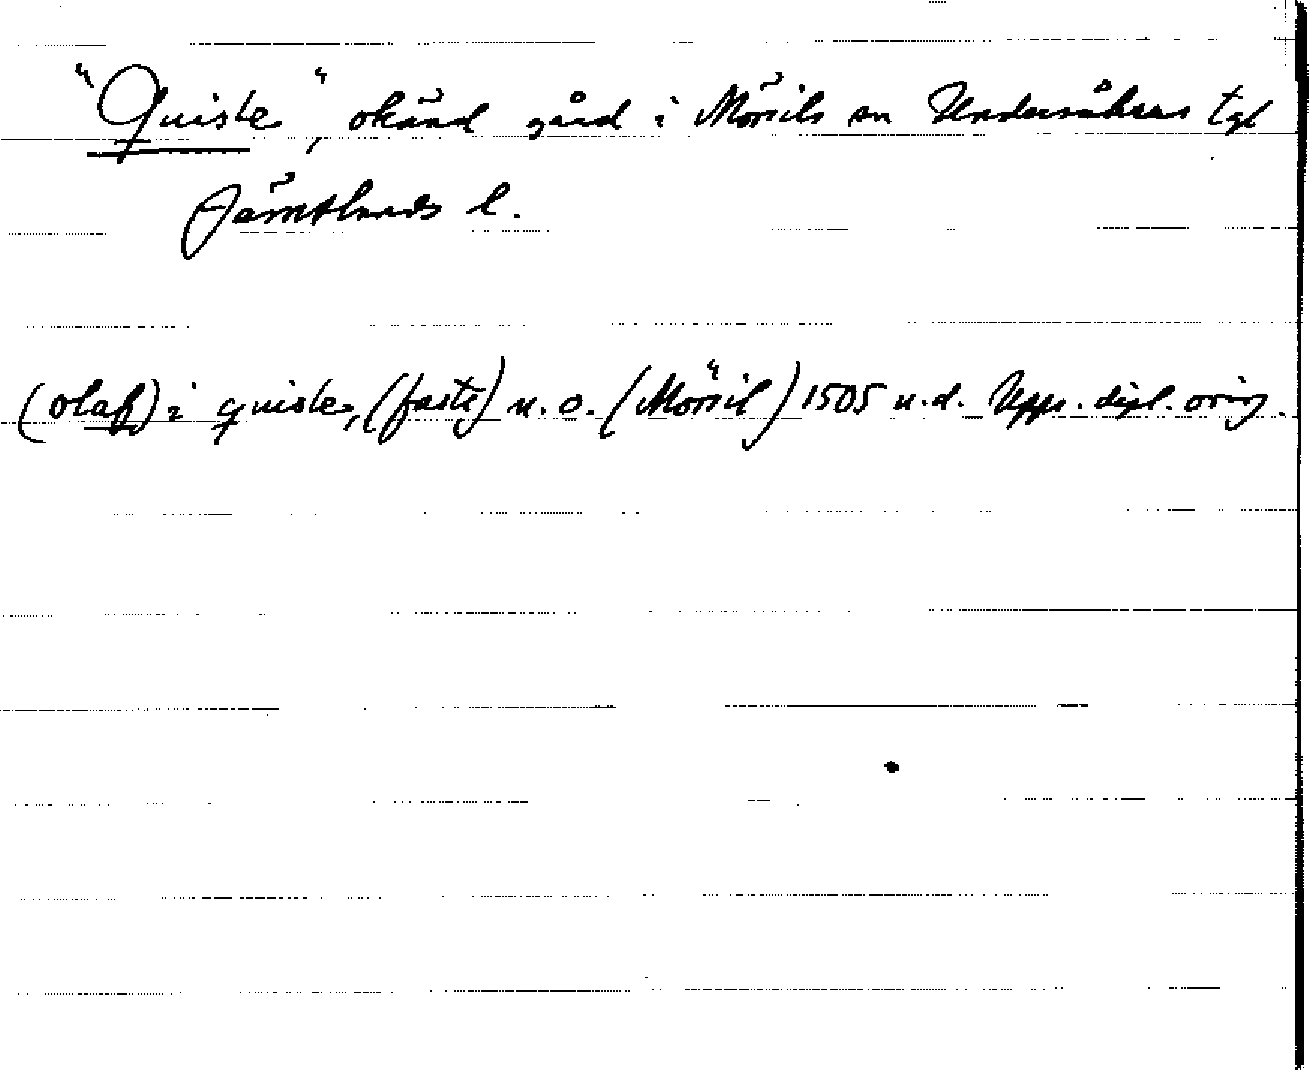 "Quiste", okänd gård i Mörsils sn Undersåkers tgl
Jämtlands l.
(olaff) i quiste, (faste) u. o. (Mörsil) 1505 u.d. Upps. dipl. orig.